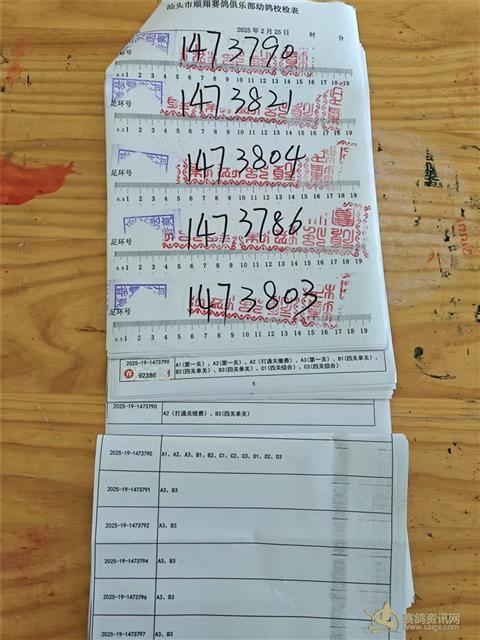 汕头市顺翔赛鸽俱乐部幼鸽校检表
2025年2月25日 时 分
足环号 1473790
0.5 1 2 3 4 5 6 7 8 9 10 11 12 13 14 15 16 17 18 19
足环号 1473821
0.5 1 2 3 4 5 6 7 8 9 10 11 12 13 14 15 16 17 18 19
足环号 1473804
0.5 1 2 3 4 5 6 7 8 9 10 11 12 13 14 15 16 17 18 19
足环号 1473786
0.5 1 2 3 4 5 6 7 8 9 10 11 12 13 14 15 16 17 18 19
足环号 1473803
0.5 1 2 3 4 5 6 7 8 9 10 11 12 13 14 15 16 17 18 19
2025-19-1473790 A1(第一关)、A2(第一关)、A2(打通关缴费)、A3(第一关)、B1(四关单关)、
92386 B2(四关单关)、B3(四关单关)、C1(四关综合)、C3(四关综合)
6
2025-19-1473790 A2(打通关续费)、B3(四关单关)
2025-19-1473790 A1、A2、A3、B1、B2、C1、C2、C3、D1、D2、D3
2025-19-1473791 A3、B3
2025-19-1473792 A3、B3
2025-19-1473794 A3、B3
2025-19-1473796 A3、B3
2025-19-1473797 A3、B3
赛鸽资讯网
www.saige.com